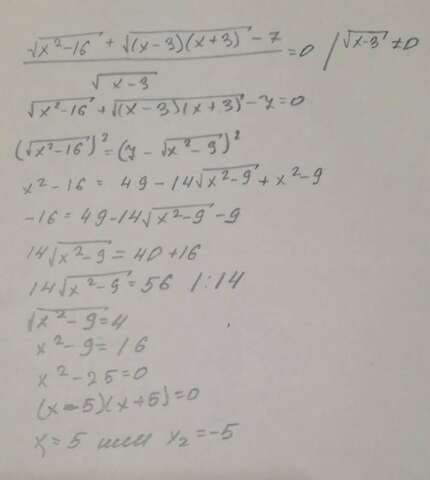 (√(x²-16) + √((x-3)(x+3)) - 7) / √(x-3) = 0 / √(x-3) ≠ 0
√(x²-16) + √((x-3)(x+3)) - 7 = 0
(√(x²-16))² = (7 - √(x²-9))²
x² - 16 = 49 - 14√(x²-9) + x² - 9
-16 = 49 - 14√(x²-9) - 9
14√(x²-9) = 40 + 16
14√(x²-9) = 56 | : 14
√(x²-9) = 4
x² - 9 = 16
x² - 25 = 0
(x-5)(x+5) = 0
x = 5 или x₂ = -5